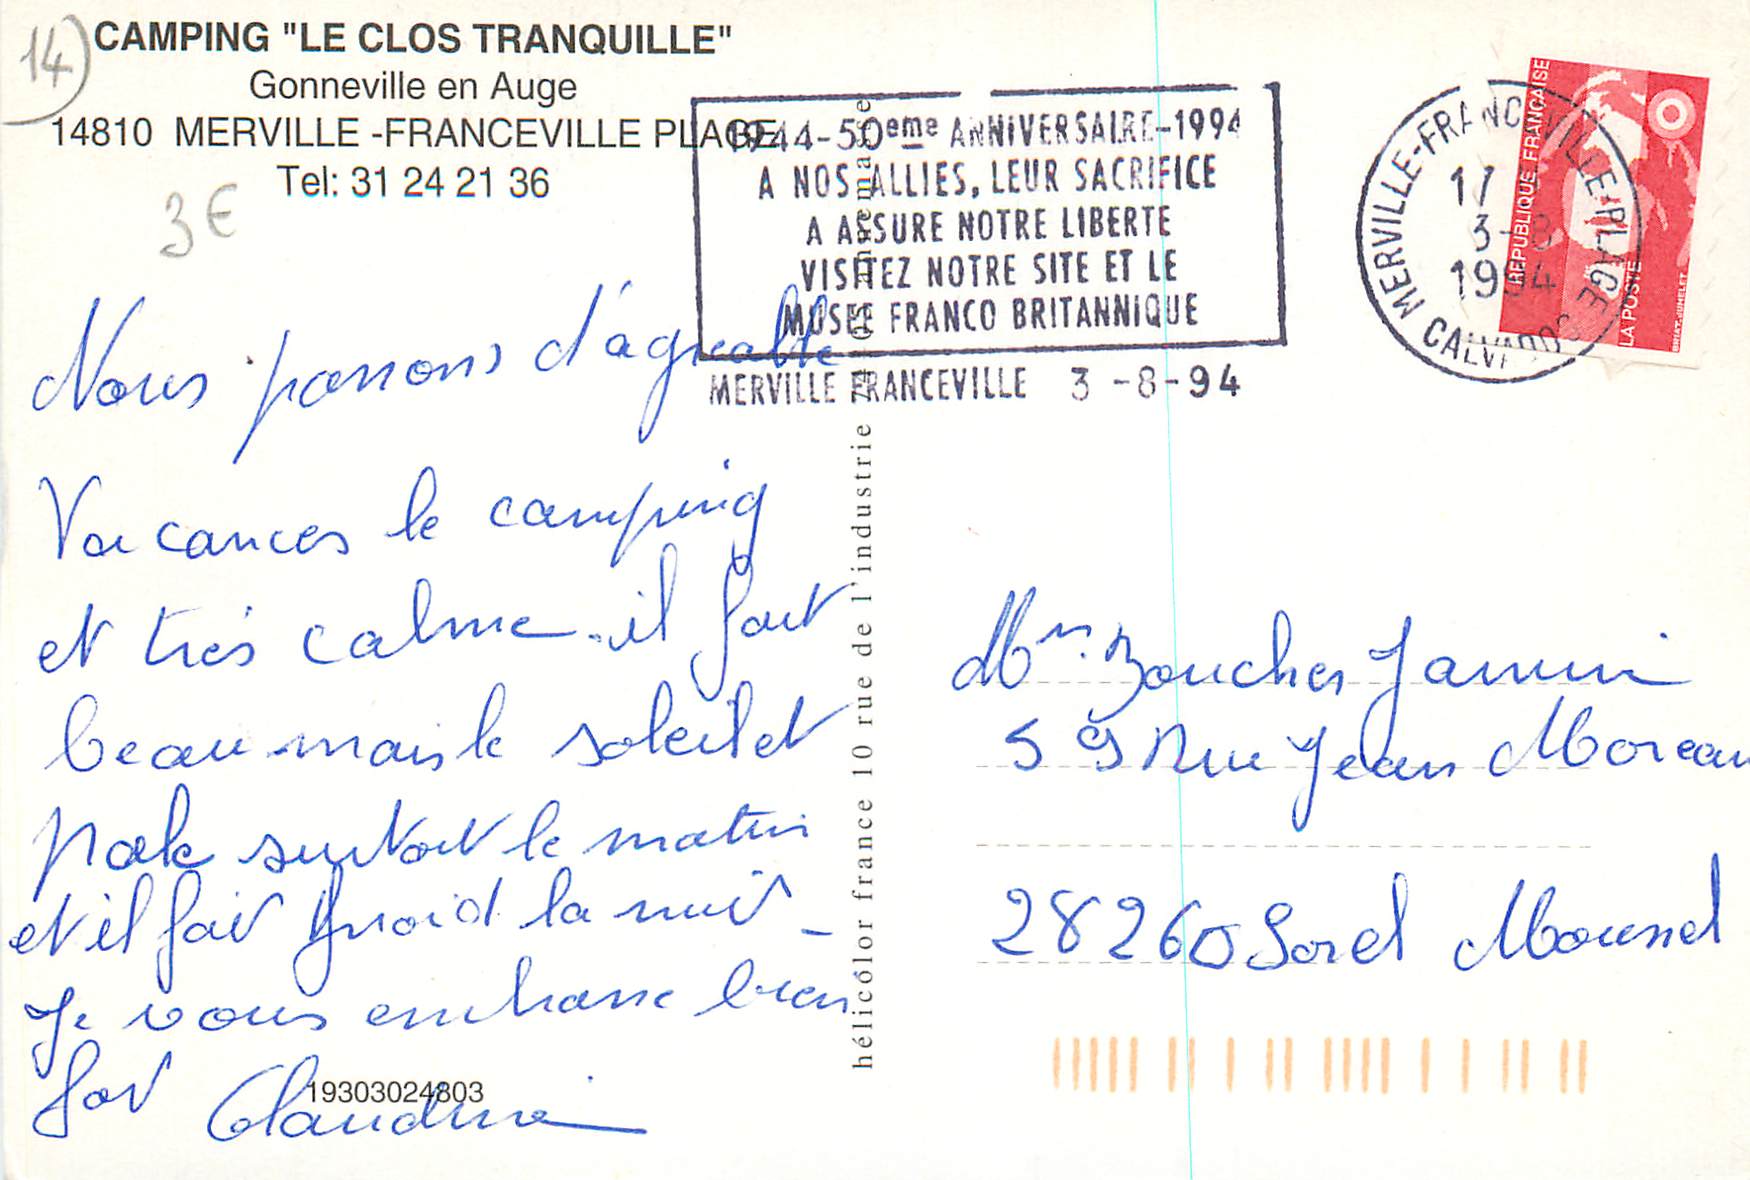 14)
CAMPING "LE CLOS TRANQUILLE"
Gonneville en Auge
14810 MERVILLE -FRANCEVILLE PLAGE
Tel: 31 24 21 36
3€
1944-50eme ANNIVERSAIRE-1994
A NOS ALLIES, LEUR SACRIFICE
A ASSURE NOTRE LIBERTE
VISITEZ NOTRE SITE ET LE
MUSEE FRANCO BRITANNIQUE
MERVILLE FRANCEVILLE 3 -8-94
MERVILLE-FRANCEVILLE-PLAGE
17
3-8
1994
CALVADOS
REPUBLIQUE FRANÇAISE
LA POSTE
BRIAT-JUMELET
Nous passons d'agreable
Vacances le camping
et très calme. il fait
beau mais le soleil et
pale surtout le matin
et il fait froid la nuit _
Je vous embrasse bien
fort Claudine
19303024803
hélicolor france 10 rue de l'industrie
Mr. Boucher Janin
59 Rue Jean Moreau
28260 Sorel Moussel